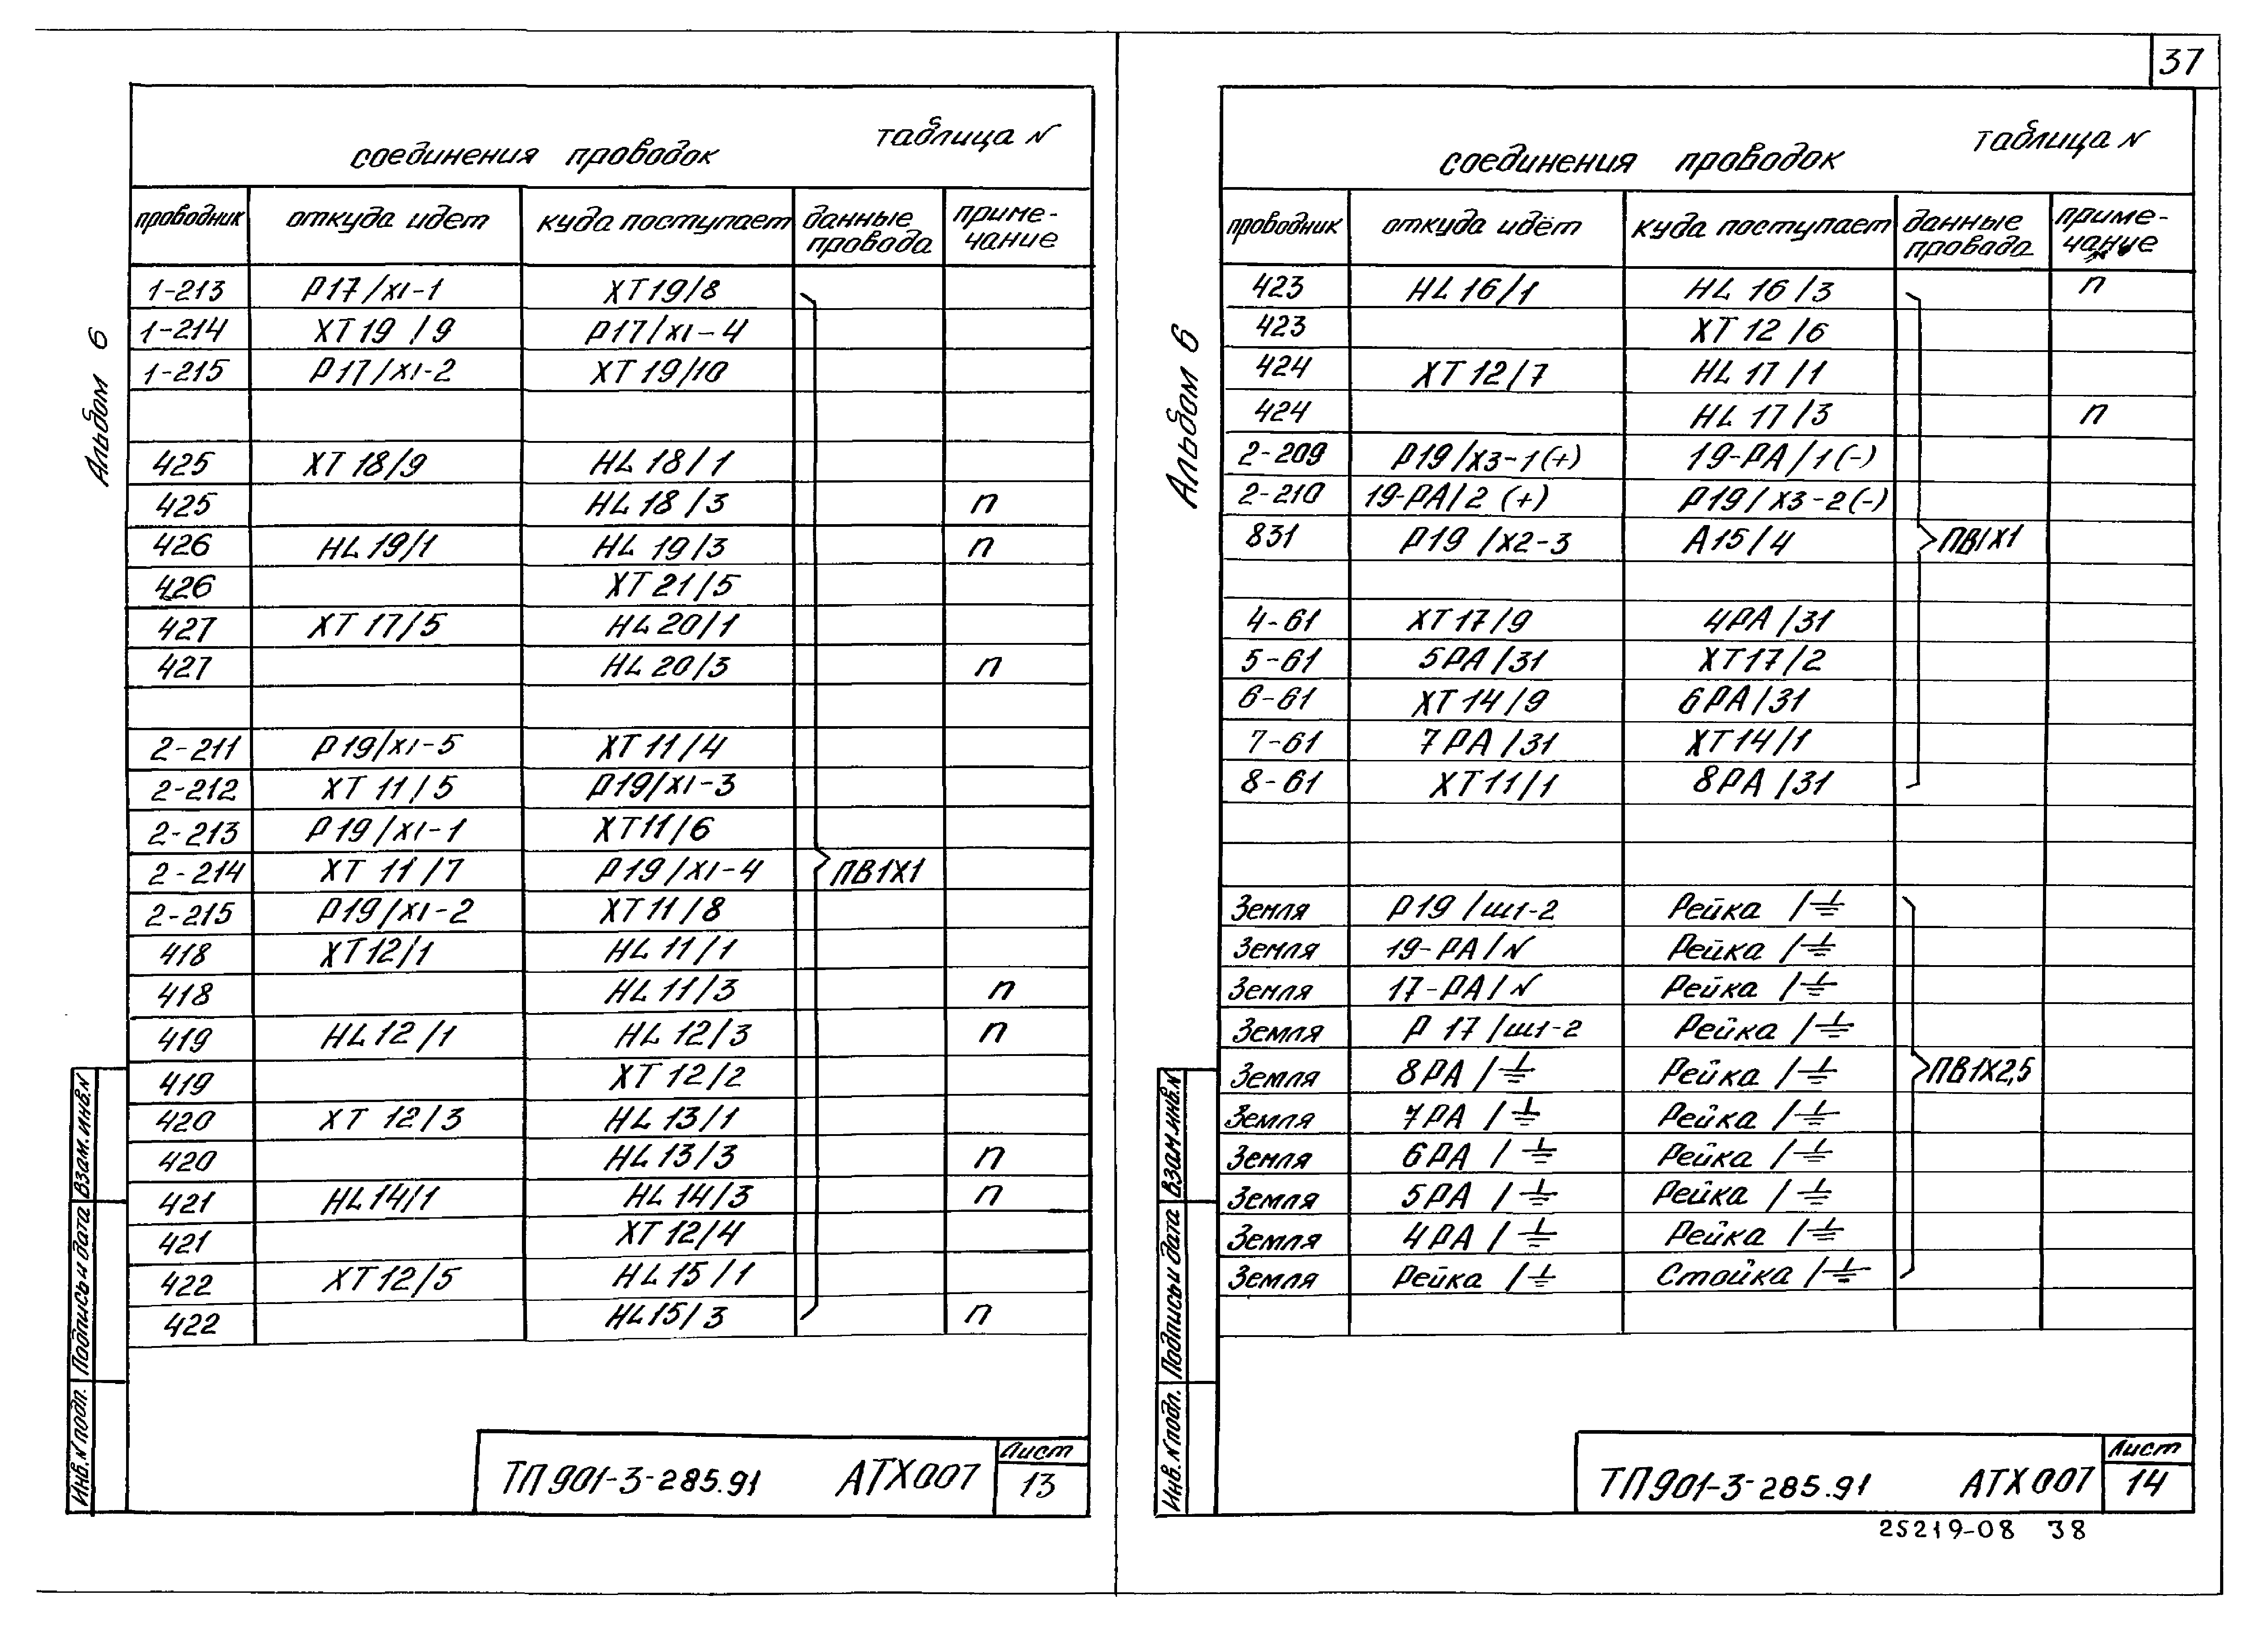 37
таблица N
соединения проводок
проводник откуда идет куда поступает данные провода приме-чание
1-213 Р17/Х1-1 ХТ19/8
1-214 ХТ19/9 Р17/Х1-4
1-215 Р17/Х1-2 ХТ19/10
425 ХТ18/9 HL18/1
425 HL18/3 п
426 HL19/1 HL19/3 п
426 ХТ21/5
427 ХТ17/5 HL20/1
427 HL20/3 п
2-211 Р19/Х1-5 ХТ11/4
2-212 ХТ11/5 Р19/Х1-3
2-213 Р19/Х1-1 ХТ11/6
2-214 ХТ11/7 Р19/Х1-4 ПВ1Х1
2-215 Р19/Х1-2 ХТ11/8
418 ХТ12/1 HL11/1
418 HL11/3 п
419 HL12/1 HL12/3 п
419 ХТ12/2
420 ХТ12/3 HL13/1
420 HL13/3 п
421 HL14/1 HL14/3 п
421 ХТ12/4
422 ХТ12/5 HL15/1
422 HL15/3 п
Альбом 6
Взам.инв.N
Подпись и дата
Инв.N подп.
ТП901-3-285.91 АТХ007 Лист
13
таблица N
соединения проводок
проводник откуда идёт куда поступает данные провода приме-чание
423 HL16/1 HL16/3 п
423 ХТ12/6
424 ХТ12/7 HL17/1
424 HL17/3 п
2-209 Р19/Х3-1(+) 19-РА/1(-)
2-210 19-РА/2(+) Р19/Х3-2(-)
831 Р19/Х2-3 А15/4 ПВ1Х1
4-61 ХТ17/9 4РА/31
5-61 5РА/31 ХТ17/2
6-61 ХТ14/9 6РА/31
7-61 7РА/31 ХТ14/1
8-61 ХТ11/1 8РА/31
Земля Р19/Ш1-2 Рейка/⏚
Земля 19-РА/N Рейка/⏚
Земля 17-РА/N Рейка/⏚
Земля Р17/Ш1-2 Рейка/⏚
Земля 8РА/⏚ Рейка/⏚ ПВ1Х2,5
Земля 7РА/⏚ Рейка/⏚
Земля 6РА/⏚ Рейка/⏚
Земля 5РА/⏚ Рейка/⏚
Земля 4РА/⏚ Рейка/⏚
Земля Рейка/⏚ Стойка/⏚
Альбом 6
Взам.инв.N
Подпись и дата
Инв.N подп.
ТП901-3-285.91 АТХ007 Лист
14
25219-08 38